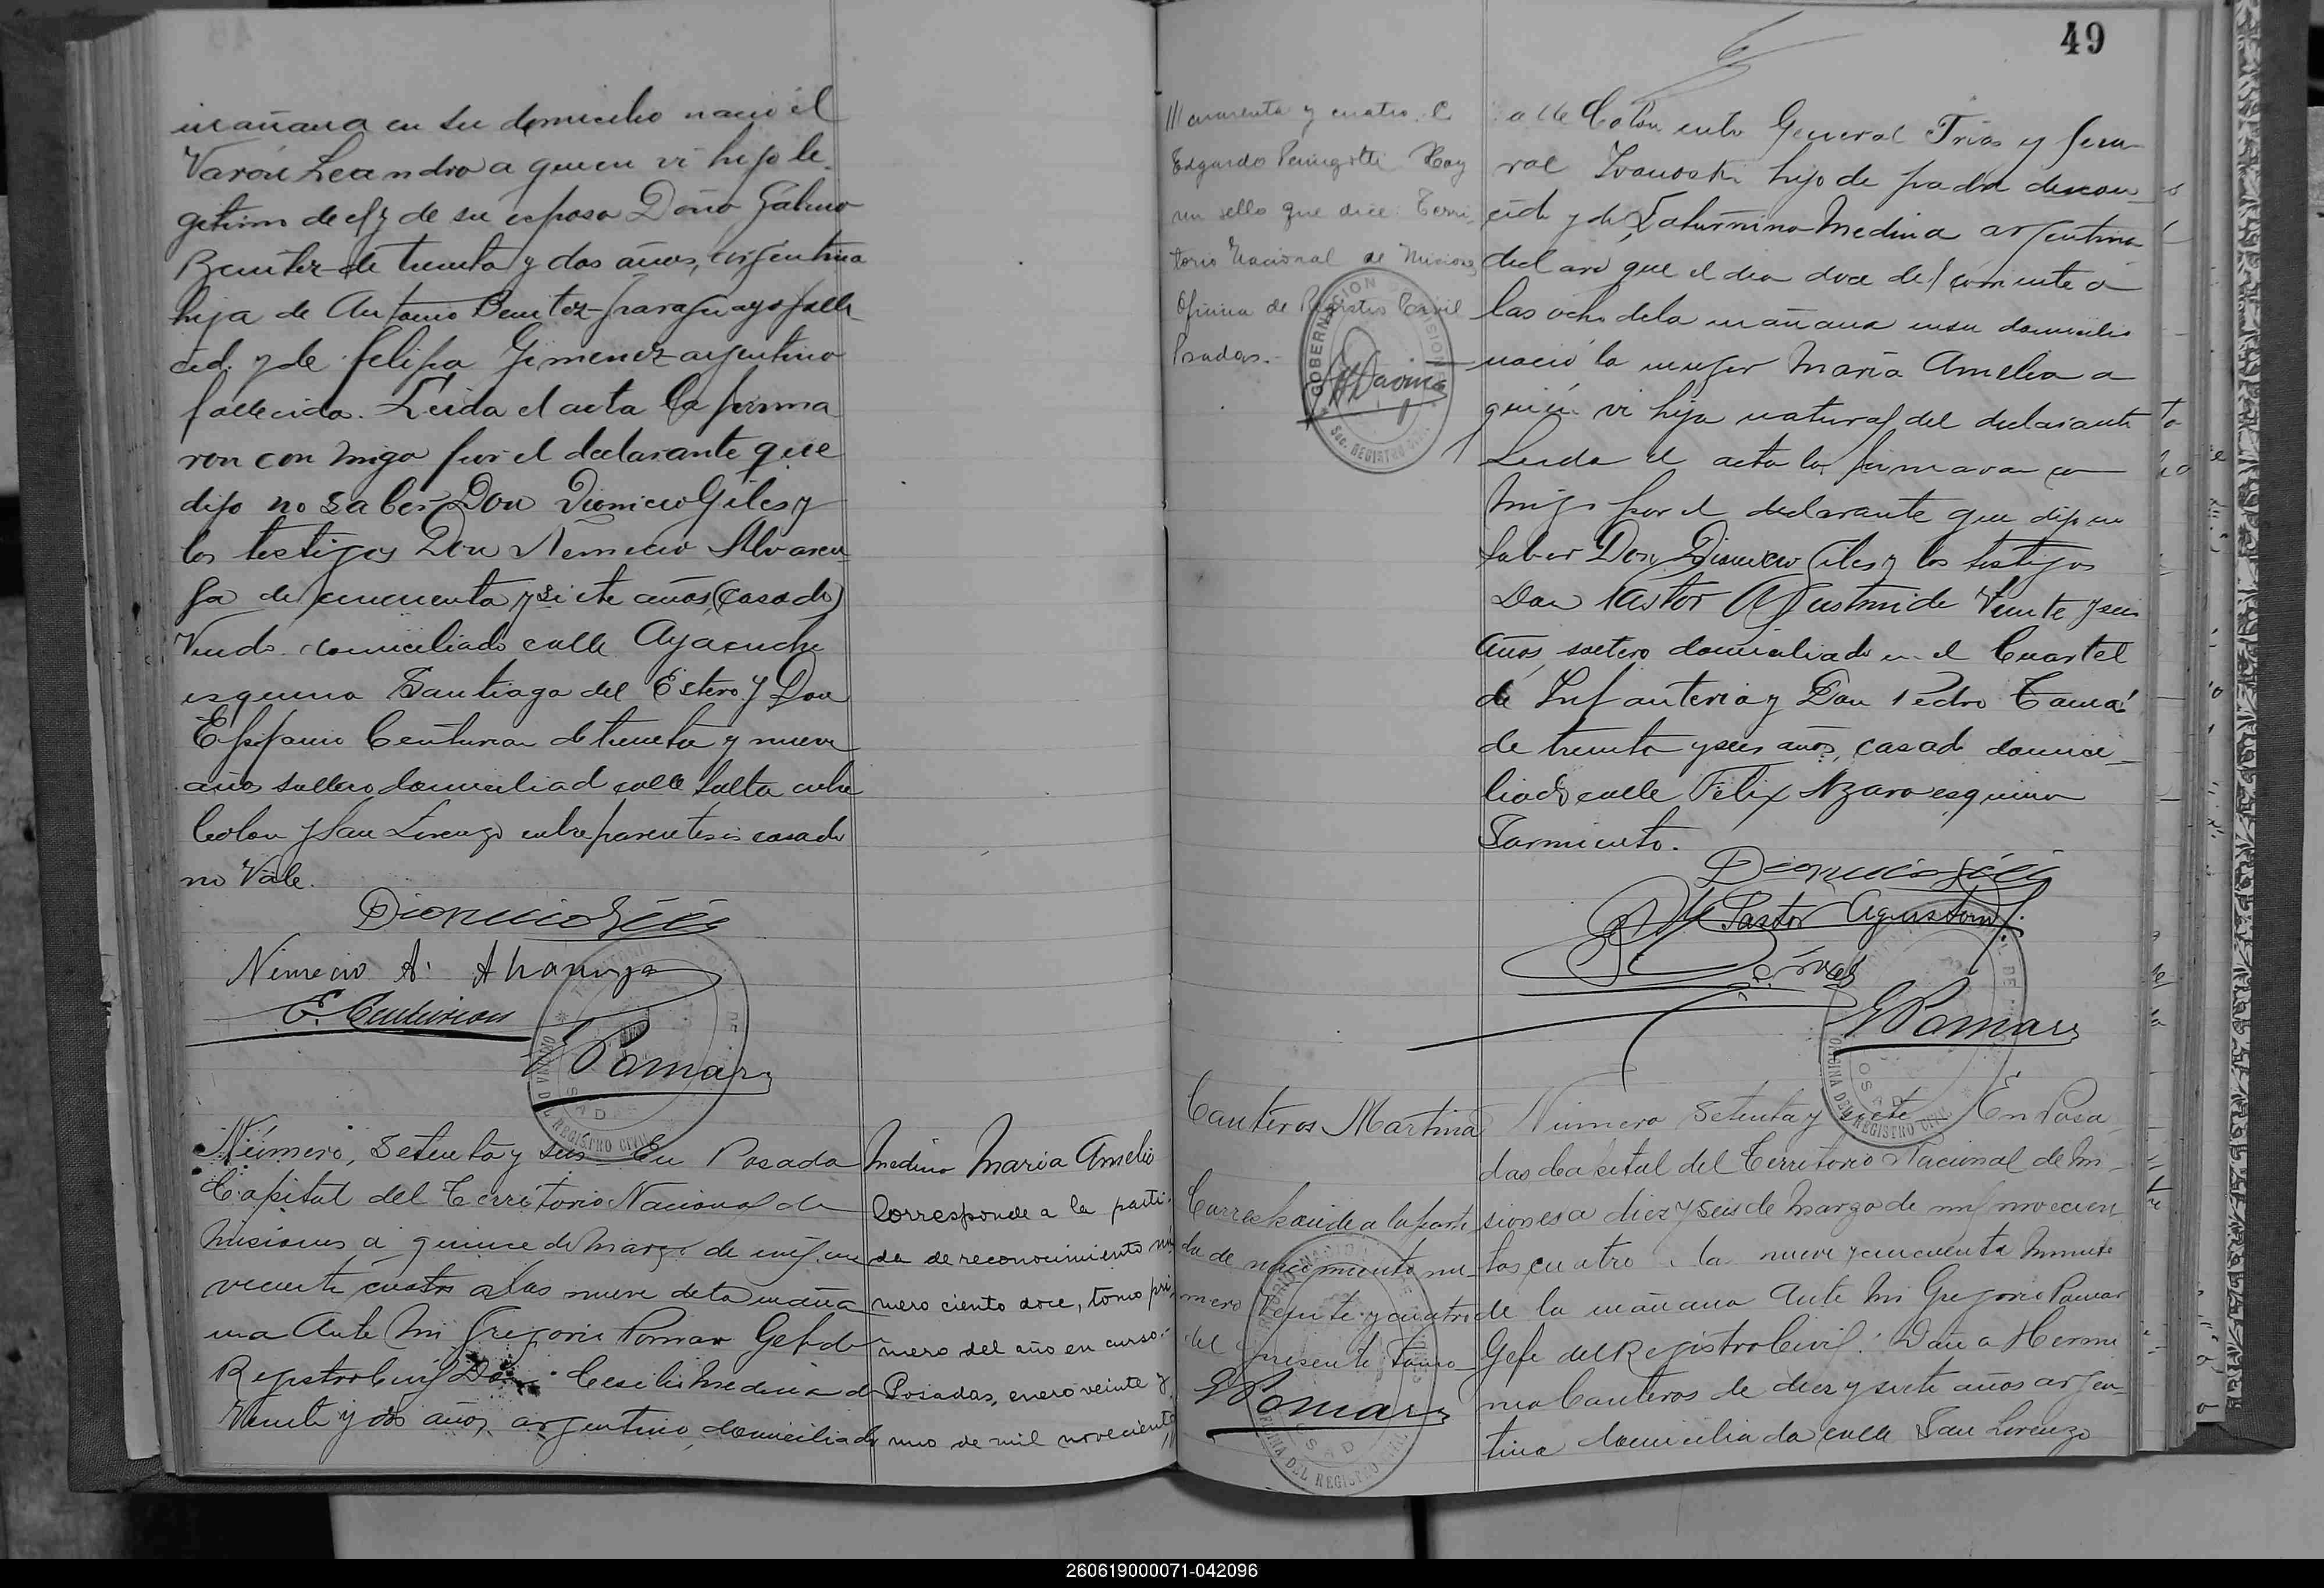 mañana en su domicilio nació el
Varón Leandro a quien vi hijo le-
gitimo de el y de su esposa Doña Gabina
Benitez de treinta y dos años, argentina
hija de Antonio Benitez paraguayo falle
cid. y de Felipa Gimenez argentina
fallecida. Leida el acta la firma
ron con migo por el declarante que
dijo no saber Don Dionicio Giles y
los testigos Don Nemecio Alvaren-
ga de cincuenta y siete años (casado)
Viudo domiciliado calle Ayacucho
esquina Santiago del Estero y Don
Epifanio Centurion de treinta y nueve
años soltero domiciliad calle Salta entre
Colon y San Lorenzo entre parentesis casado
no Vale.
Dionicio Giles
Nimecio A. Alvarenga
E. Centurion
GPomar
Número, Setenta y seis En Posada
Capital del Territorio Nacional de
Misiones a quince de Marzo de mil no
veciento cuatro a las nueve de la maña
na Ante Mi Gregorio Pomar Gefe de
Registro Civil Don Cecilio Medina de
Veinte y dos años, argentino, domiciliado
Medina Maria Amelia
Corresponde a la parti-
da de reconocimiento nú
mero ciento doce, tomo pri
mero del año en curso.-
Posadas, enero veinte y
uno de mil novecientos
49
cuarenta y cuatro.
Edgardo Hay
un sello que dice: Terri-
torio Nacional de Misiones
Oficina de Registro Civil
Posadas.-
GOBERNACION MISIONES
Sec. REGISTRO
calle Colon entre General Frias y Gene
ral hijo de padre descono_
cido y de Saturnina Medina argentina
declaro que el dia doce del corriente a
las ocho de la mañana en su domicilio
nació la mujer Maria Amelia a
quien vi hija natural del declarante
Leida el acta la firmaron con
migo por el declarante que dijo no
saber Don Dionicio Giles y los testigos
Don Pastor Agustini de Veinte y seis
años, soltero domiciliado en el Cuartel
de Infanteria y Don Pedro
de treinta y seis años, casado domici_
liado calle Felix Azara esquina
Sarmiento.
Dionicio Giles
Pastor Agustini
GPomar
Canteros Martina
Corresponde a la parti
da de nacimiento nu_
mero veinte y cuatro
del presente tomo
GPomar
OFICINA DEL REGISTRO CIVIL
Número Setenta y siete En Posa
das Capital del Territorio Nacional de Mi_
siones a diez y seis de Marzo de mil novecien
tos cuatro a la nueve y cincuenta minutos
de la mañana Ante Mi Gregorio Pomar
Gefe del Registro Civil: Doña Hermi
nia Canteros de diez y siete años argen_
tina domiciliada calle San Lorenzo
260619000071-042096